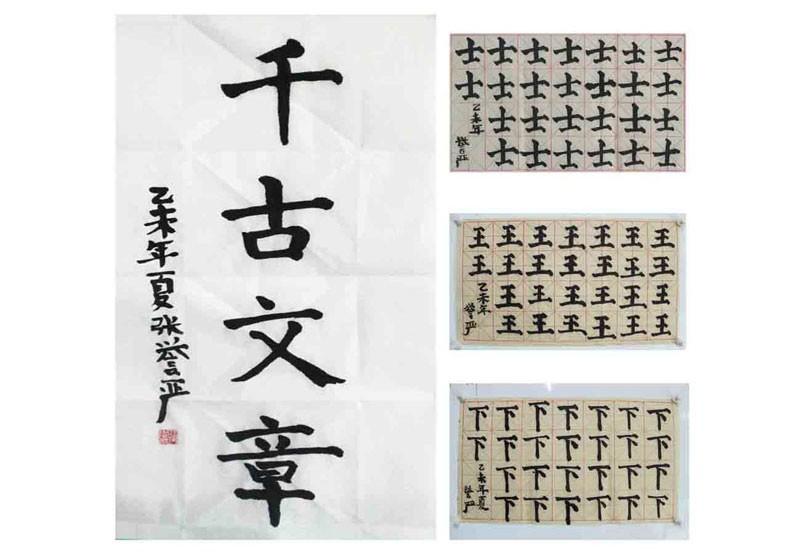 千古文章
乙未年夏张誉严
士士士士
士士士士
士士士士
士士士士
士士士士
士士士士
士士
乙未年
誉严
王王王王
王王王王
王王王王
王王王王
王王王王
王王王王
王王
乙未年
誉严
下下下下
下下下下
下下下下
下下下下
下下下下
下下下下
下下
乙未年夏
誉严